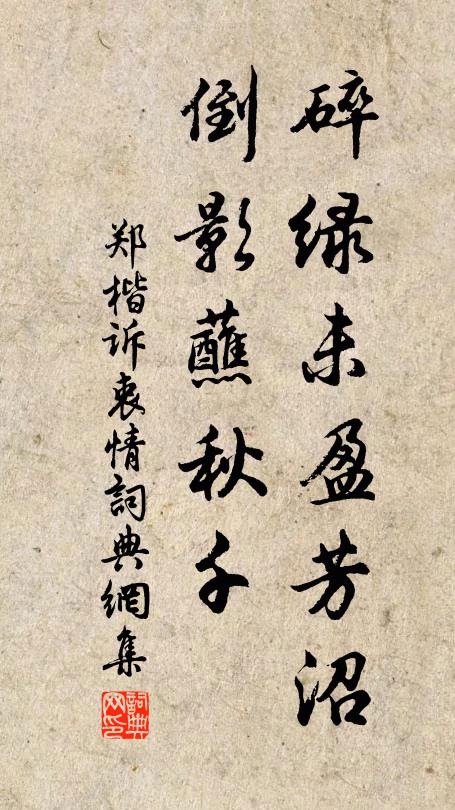 碎绿未盈芳沼
倒影蘸秋千
郑楷诉衷情詞典網集
詞典网印